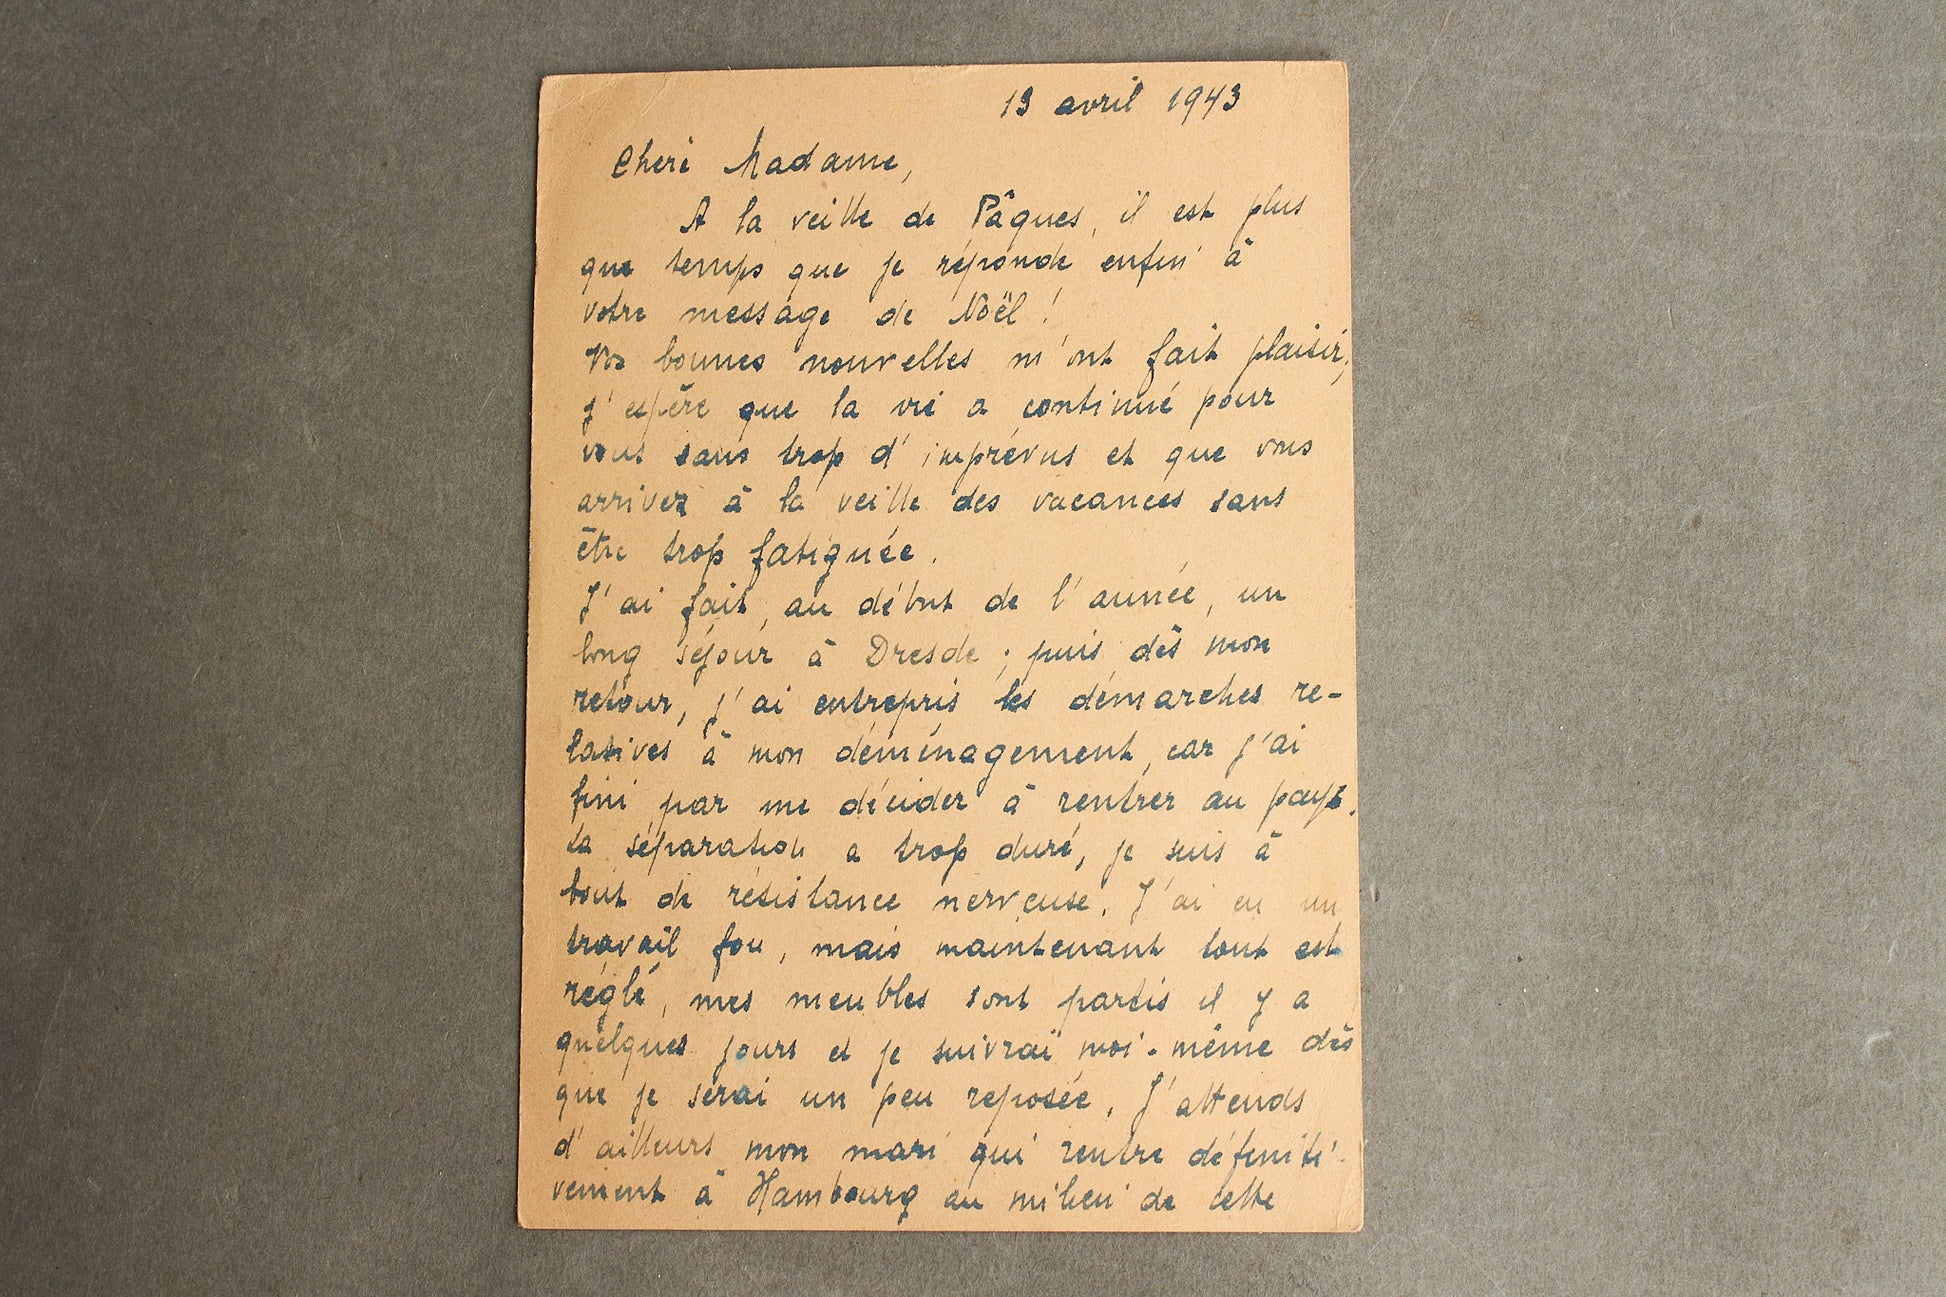 13 avril 1943
Cheri Madame,
A la veille de Pâques, il est plus
que temps que je réponde enfin à
votre message de Noël !
Vos bonnes nouvelles m'ont fait plaisir,
j'espère que la vie a continué pour
vous sans trop d'imprévus et que vous
arrivez à la veille des vacances sans
être trop fatiguée.
J'ai fait, au début de l'année, un
long séjour à Dresde ; puis dès mon
retour, j'ai entrepris les démarches re-
latives à mon déménagement, car j'ai
fini par me décider à rentrer au pays.
La séparation a trop duré, je suis à
bout de résistance nerveuse. J'ai eu un
travail fou, mais maintenant tout est
réglé, mes meubles sont partis il y a
quelques jours et je suivrai moi-même dès
que je serai un peu reposée. J'attends
d'ailleurs mon mari qui rentre définiti-
vement à Hambourg au milieu de cette